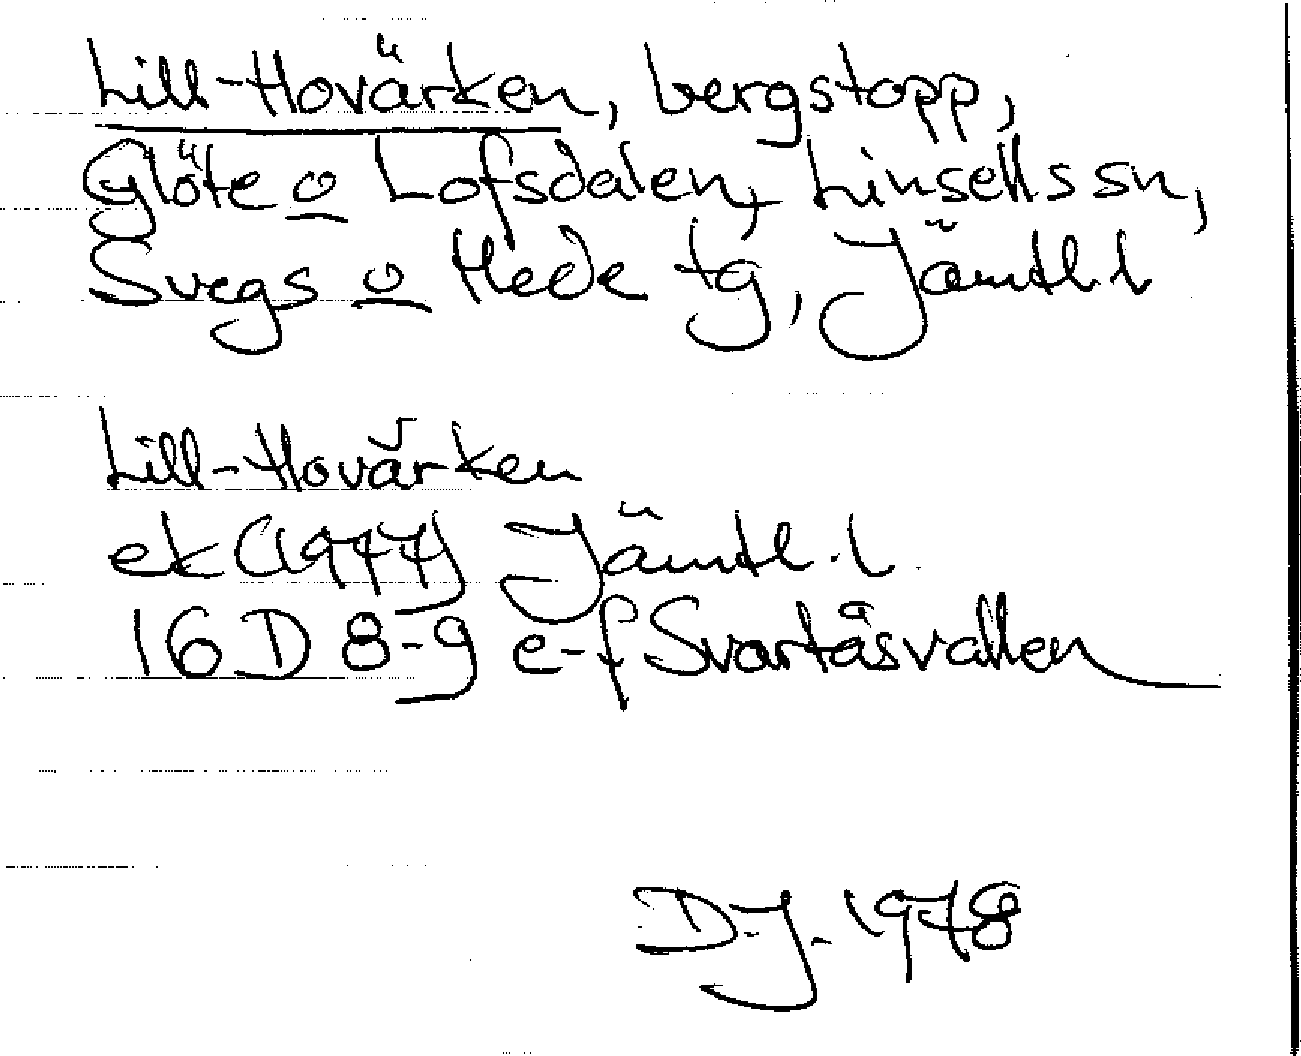 Lill-Hovärken, bergstopp,
Glöte o Lofsdalen, Linsells sn,
Svegs o Hede tg, Jämtl. l
Lill-Hovärken
ek (1977) Jämtl. l.
16 D 8-9 e-f Svartåsvallen
D.J. 1978